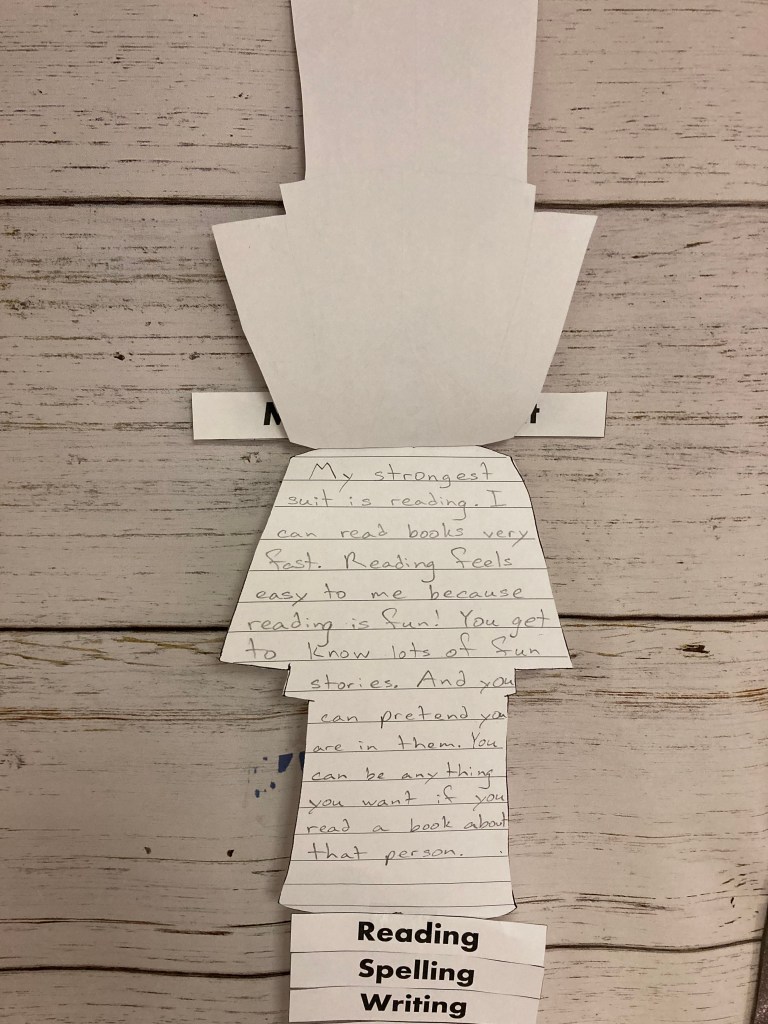 My strongest
suit is reading. I
can read books very
fast. Reading feels
easy to me because
reading is fun! You get
to know lots of fun
stories. And you
can pretend you
are in them. You
can be any thing
you want if you
read a book about
that person.
Reading
Spelling
Writing